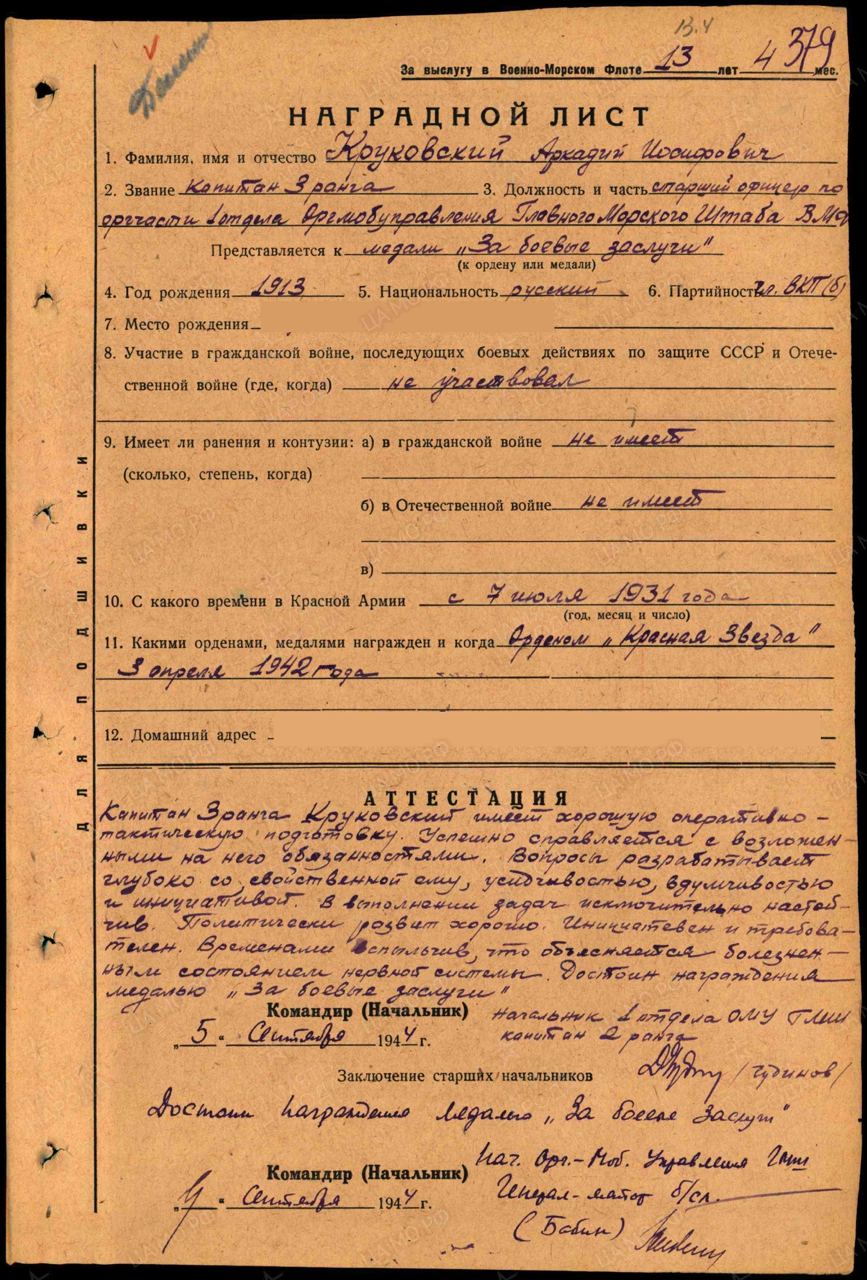 13.4
379
За выслугу в Военно-Морском Флоте 13 лет 4 мес.
НАГРАДНОЙ ЛИСТ
1. Фамилия, имя и отчество Круковский Аркадий Иосифович
2. Звание капитан 3 ранга 3. Должность и часть старший офицер по
оргчасти 1 отдела Оргмобуправления Главного Морского Штаба ВМФ
Представляется к медали „За боевые заслуги"
(к ордену или медали)
4. Год рождения 1913 5. Национальность русский 6. Партийность чл. ВКП(б)
7. Место рождения
8. Участие в гражданской войне, последующих боевых действиях по защите СССР и Отече-
ственной войне (где, когда) не участвовал
9. Имеет ли ранения и контузии: а) в гражданской войне не имеет
(сколько, степень, когда)
б) в Отечественной войне не имеет
в)
10. С какого времени в Красной Армии с 7 июля 1931 года
(год, месяц и число)
11. Какими орденами, медалями награжден и когда Орденом „Красная Звезда"
3 апреля 1942 года
12. Домашний адрес
ДЛЯ ПОДШИВКИ
АТТЕСТАЦИЯ
Капитан 3 ранга Круковский имеет хорошую оперативно-
тактическую подготовку. Успешно справляется с возложен-
ными на него обязанностями. Вопросы разрабатывает
глубоко со, свойственной ему, усидчивостью, вдумчивостью
и инициативой. В выполнении задач исключительно настой-
чив. Политически развит хорошо. Инициативен и требова-
телен. Временами вспыльчив, что объясняется болезнен-
ным состоянием нервной системы. Достоин награждения
медалью „За боевые заслуги"
Командир (Начальник) Начальник 1 отдела ОМУ ГМШ
капитан 2 ранга
„5" Сентября 1944 г.
/Чудинов/
Заключение старших начальников
Достоин награждения медалью „За боевые заслуги"
Командир (Начальник) Нач. Орг.-Моб. Управления ГМШ
Генерал-майор б/сл.
Сентября 1944 г.
(Бабин)